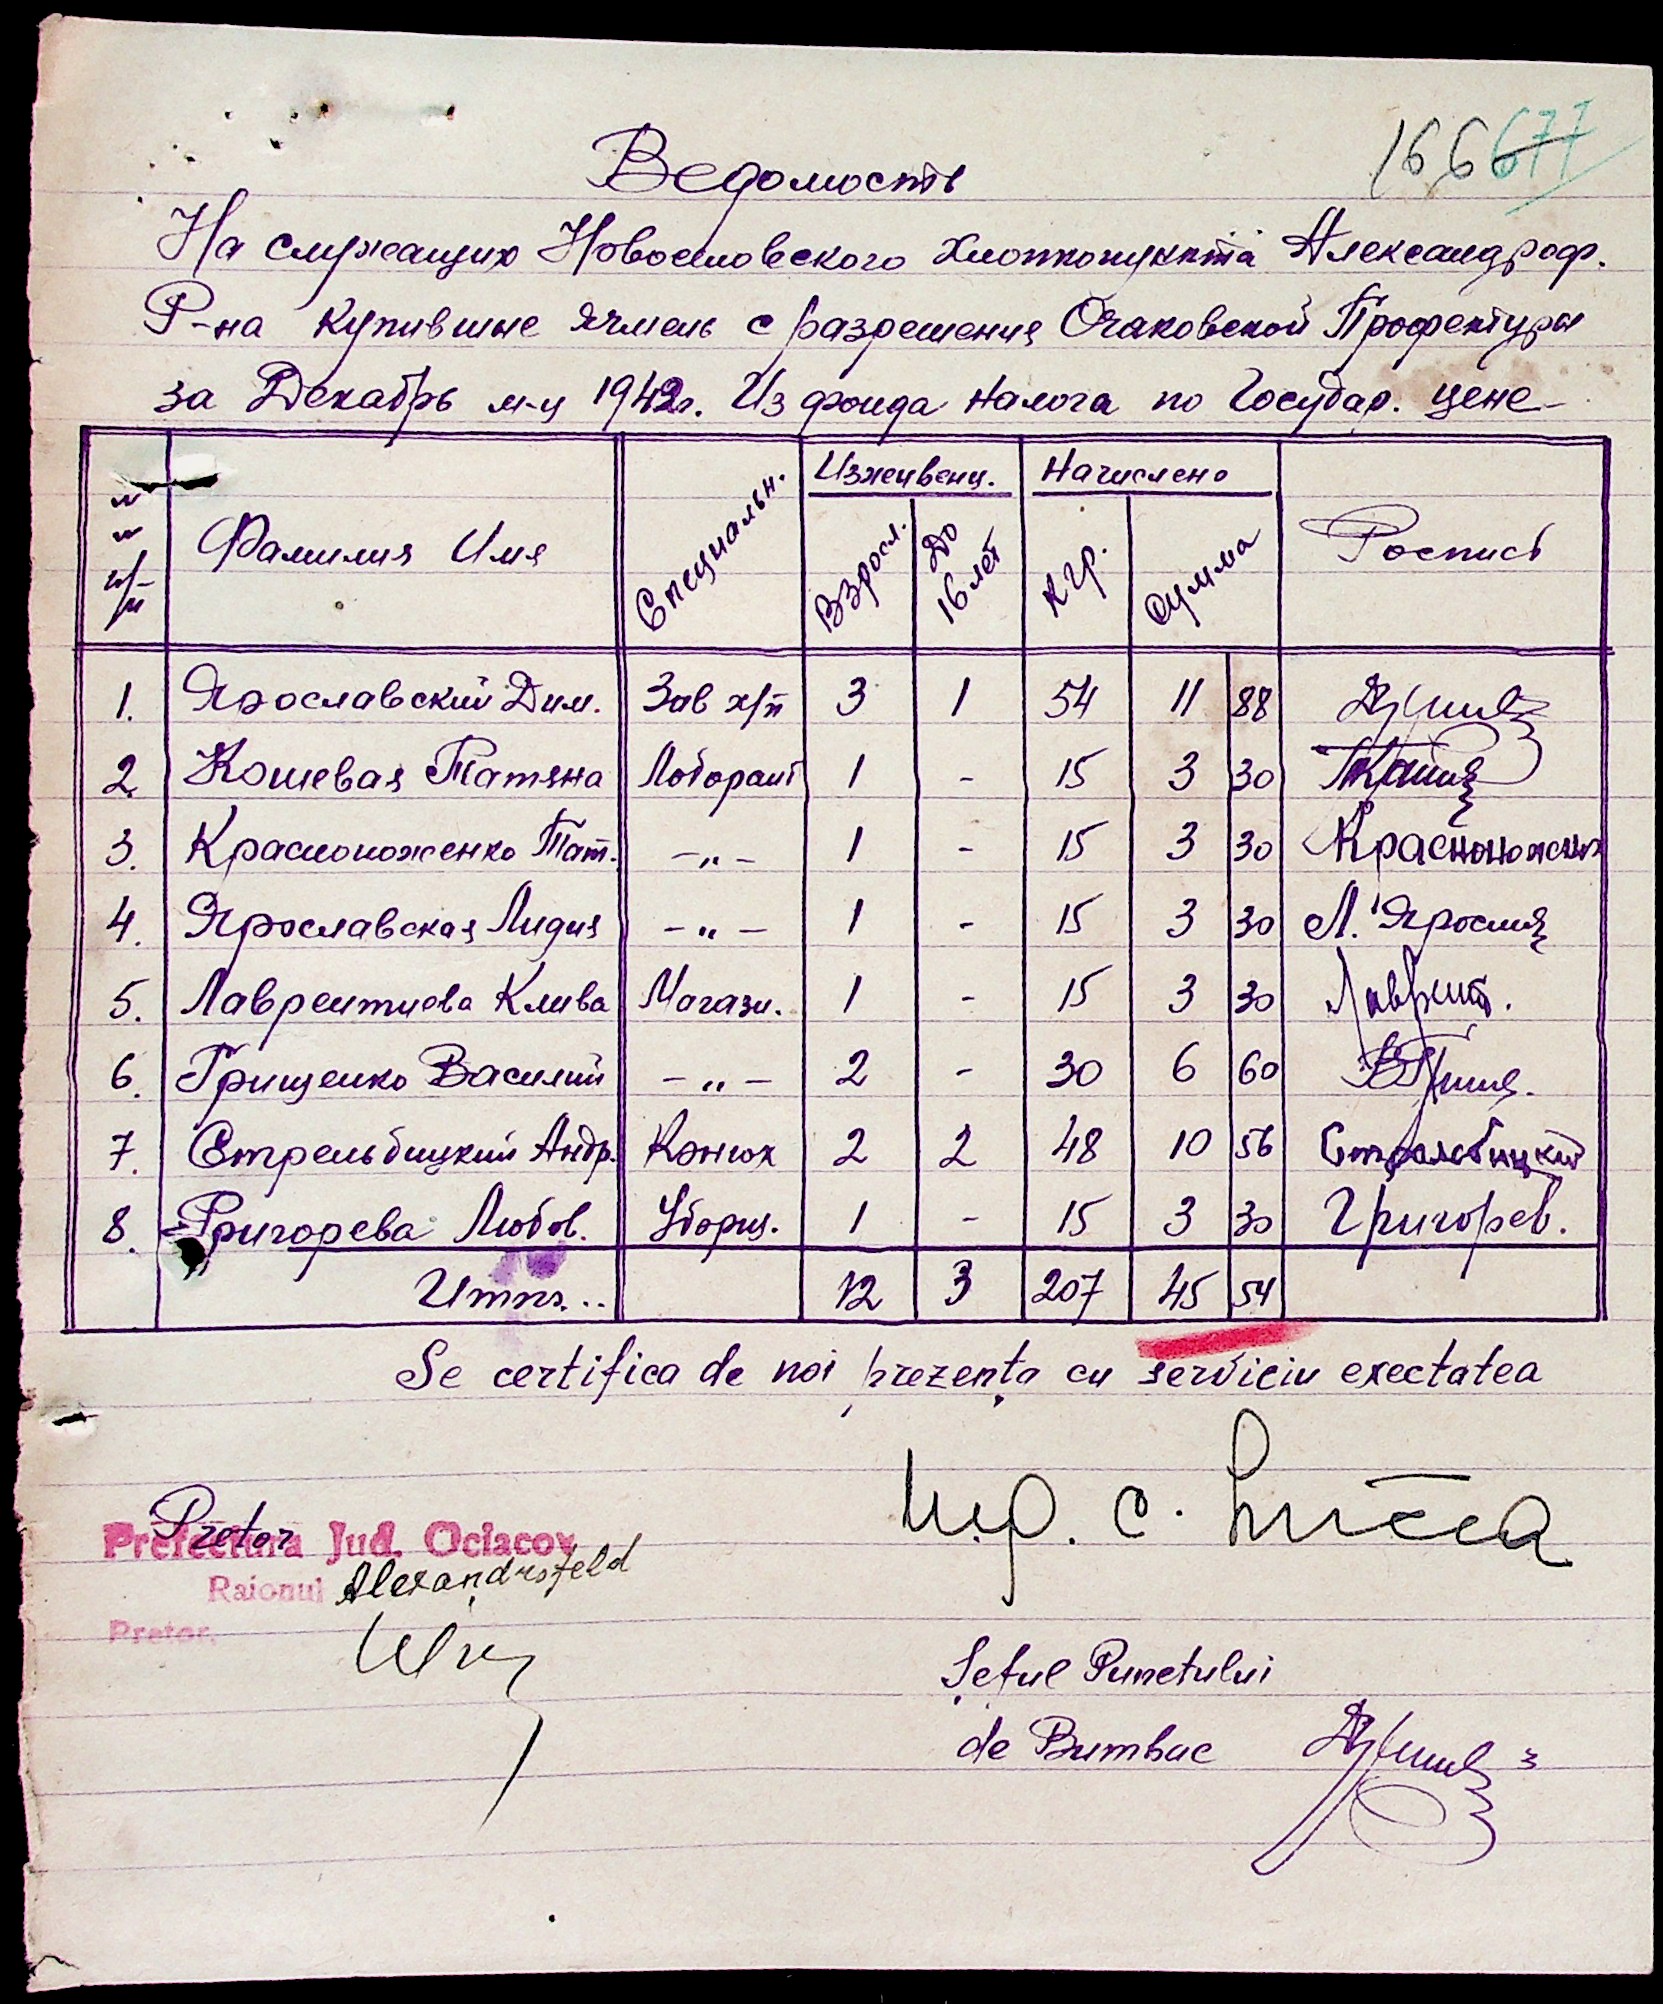 166 677
Ведомость
На служащих Новосиловского хлопкопункта Александроф.
Р-на купившие ячмень с разрешения Очаковской Профектуры
за Декабрь м-ц 1942г. Из фонда налога по Государ. цене
№№ п/п Фамилия Имя Специальн. Изжевенц. Взросл. До 16 лет Начислено Кгр. Сумма Роспись
1. Ярославский Дим. Зав х/п 3 1 54 11 88
2. Кошевая Татяна Лоборант 1 - 15 3 30
3. Красноноженко Тат. -„- 1 - 15 3 30 Красноножен
4. Ярославская Лидия -„- 1 - 15 3 30 Л. Яросл
5. Лаврентиева Клива Магази. 1 - 15 3 30 Лаврент.
6. Грищенко Василий -„- 2 - 30 6 60
7. Стрельбицкий Андр. Конюх 2 2 48 10 56 Стрелбицкий
8. Григорева Любов. Уборщ. 1 - 15 3 30 Григорев.
Итого.. 12 3 207 45 54
Se certifica de noi prezența cu serviciu exectatea
Pretor
Prefectura Jud. Ociacov
Raionul Alexandrofeld
Pretor,
Șeful Punctului
de Bumbac